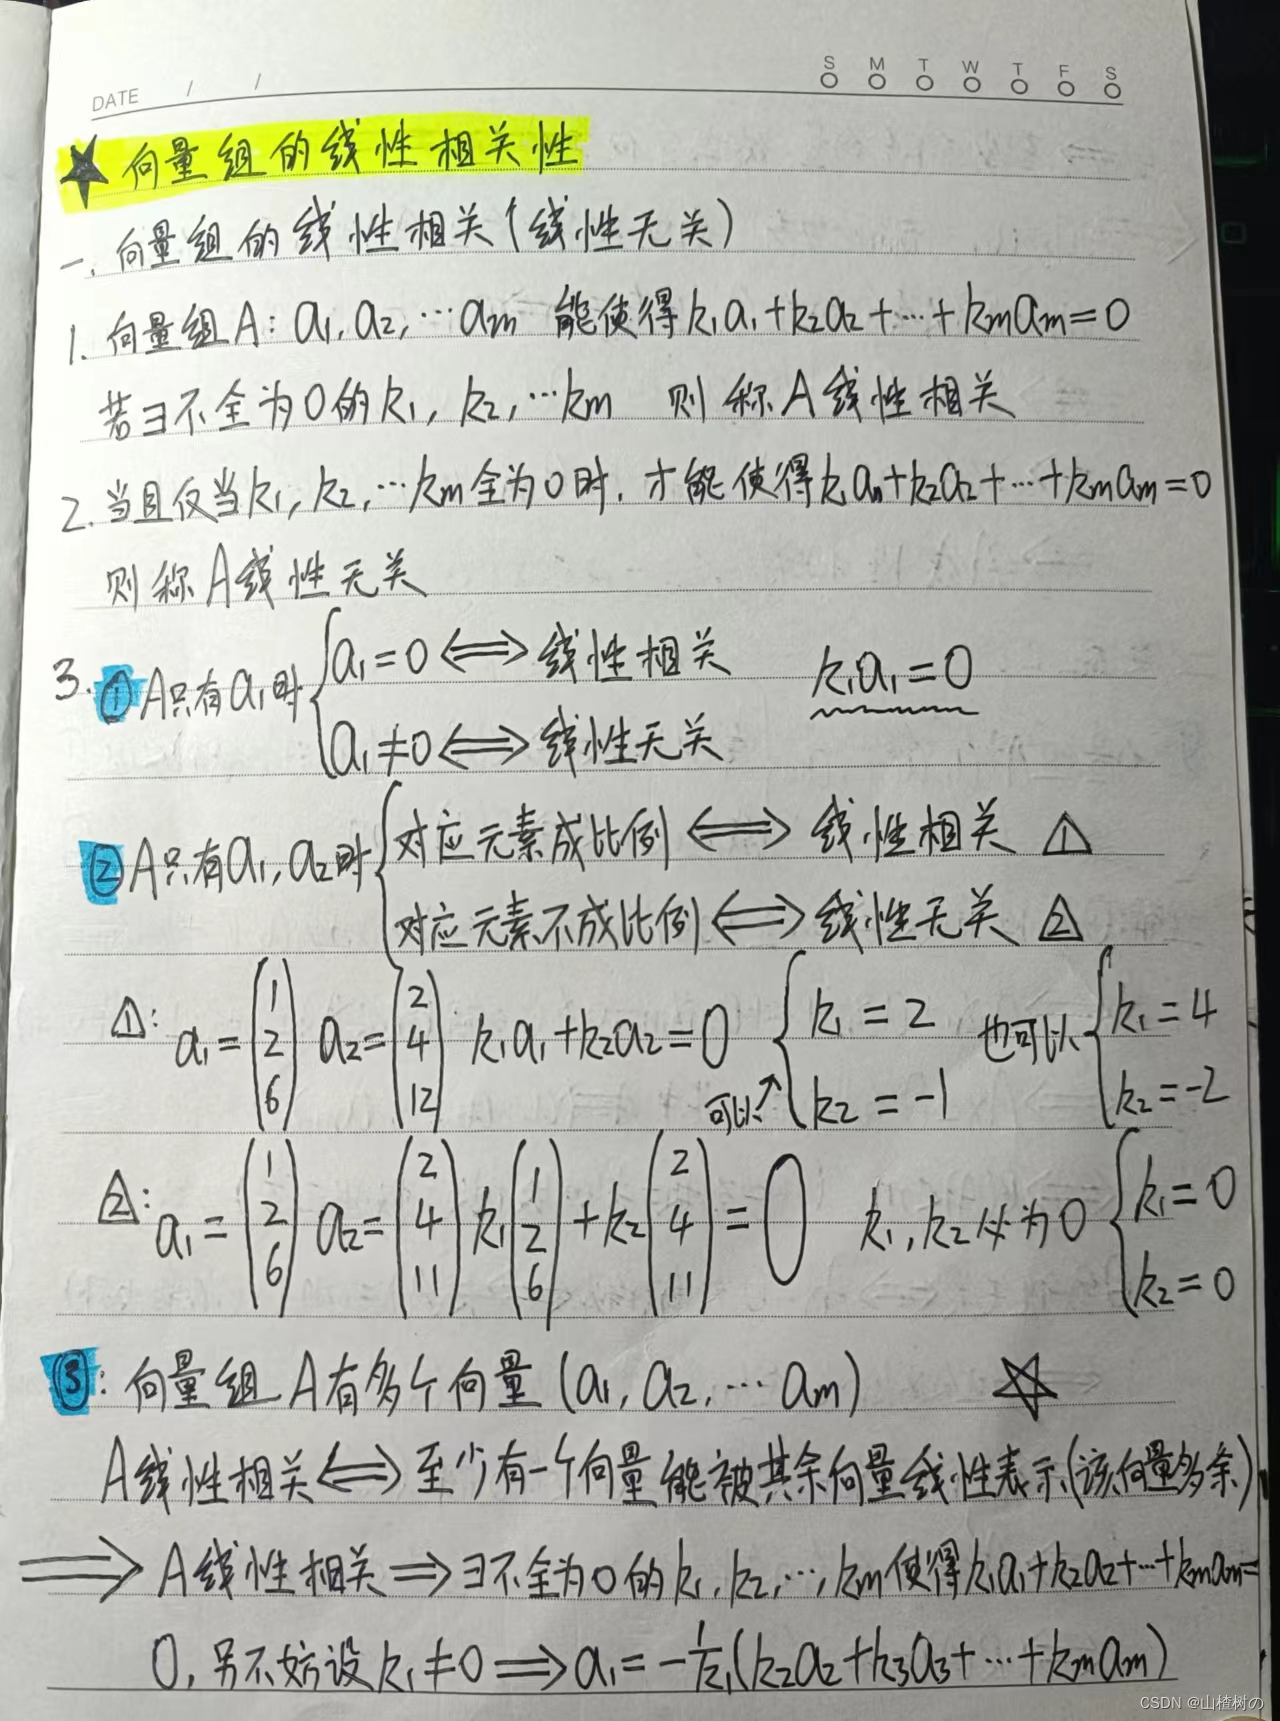 DATE / /
S M T W T F S
★ 向量组的线性相关性
一. 向量组的线性相关(线性无关)
1. 向量组A: a₁, a₂, …aₘ 能使得k₁a₁+k₂a₂+…+kₘaₘ=0
若∃不全为0的k₁, k₂, …kₘ 则称A线性相关
2. 当且仅当k₁, k₂, …kₘ全为0时, 才能使得k₁aₙ+k₂a₂+…+kₘaₘ=0
则称A线性无关
3. ① A只有a₁时 { a₁=0 ⟺ 线性相关 k₁a₁=0
a₁≠0 ⟺ 线性无关
② A只有a₁, a₂时 { 对应元素成比例 ⟺ 线性相关 △1
对应元素不成比例 ⟺ 线性无关 △2
△1: a₁=(1 2 6) a₂=(2 4 12) k₁a₁+k₂a₂=0 可以↗ { k₁=2 k₂=-1 也可以 { k₁=4 k₂=-2
△2: a₁=(1 2 6) a₂=(2 4 11) k₁(1 2 6)+k₂(2 4 11)=0 k₁, k₂必为0 { k₁=0 k₂=0
③: 向量组A有多个向量(a₁, a₂, …aₘ) ☆
A线性相关⟺至少有一个向量能被其余向量线性表示(该向量多余)
⟹ A线性相关⟹∃不全为0的k₁, k₂, …, kₘ使得k₁a₁+k₂a₂+…+kₘaₘ=
0, 另不妨设k₁≠0⟹a₁=-1/k₁(k₂a₂+k₃a₃+…+kₘaₘ)
CSDN @山楂树の